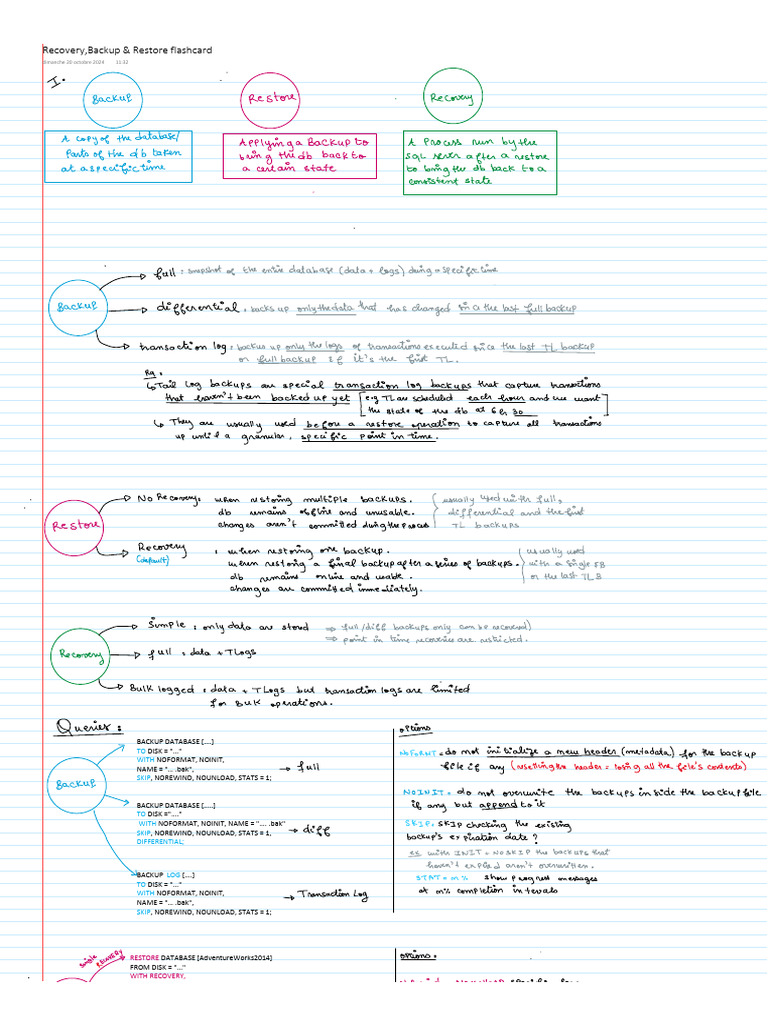 Recovery,Backup & Restore flashcard
dimanche 20 octobre 2024 11:32
I.
Backup
Restore
Recovery
A copy of the database/
Parts of the db taken
at a specific time
Applying a Backup to
bring the db back to
a certain state
A Process run by the
SQL server after a restore
to bring the db back to a
consistent state
Backup
full : snapshot of the entire database (data + logs) during a specific time
differential : backs up only the data that has changed since the last full backup
transaction log : backus up only the logs of transactions executed since the last TL backup
or full backup if it's the first TL.
Rq :
↳ Tail Log backups are special transaction log backups that capture transactions
that haven't been backed up yet [e.g TL are scheduled each hour and we want
the state of the db at 6h 30]
↳ They are usually used before a restore operation to capture all transactions
up until a granular, specific point in time.
Restore
No Recovery : when restoring multiple backups.
db remains offline and unusable.
changes aren't committed during the process
usually used with full,
differential and the first
TL backups
Recovery : when restoring one backup.
(default)
when restoring a final backup after a series of backups.
db remains online and usable.
changes are commited immediately.
usually used
with a single FB
or the last TLB
Recovery
Simple : only data are stored ⇒ full/diff backups only can be recovered)
⇒ point in time recoveries are restricted.
full : data + TLogs
Bulk logged : data + TLogs but transaction logs are limited
for Bulk operations.
Queries :
Backup
BACKUP DATABASE [....]
TO DISK = "..."
WITH NOFORMAT, NOINIT,
NAME = "... .bak",
SKIP, NOREWIND, NOUNLOAD, STATS = 1;
→ full
BACKUP DATABASE [....]
TO DISK ="...."
WITH NOFORMAT, NOINIT, NAME = "... .bak"
SKIP, NOREWIND, NOUNLOAD, STATS = 1,
DIFFERENTIAL;
→ diff
BACKUP LOG [....]
TO DISK = "..."
WITH NOFORMAT, NOINIT,
NAME = "... .bak",
SKIP, NOREWIND, NOUNLOAD, STATS = 1;
→ Transaction Log
options
NOFORMT = do not initialize a new header (metadata) for the backup
file if any (resetting the header = losing all the file's contents)
NOINIT = do not overwrite the backups inside the backup file
if any but append to it
SKIP = SKIP checking the existing
backup's expiration date ?
ex with INIT + NOSKIP the backups that
haven't expired aren't overwritten.
STAT = n% show progress messages
at n% completion intervals
Single RECOVERY
RESTORE DATABASE [AdventureWorks2014]
FROM DISK = "..."
WITH RECOVERY,
options :